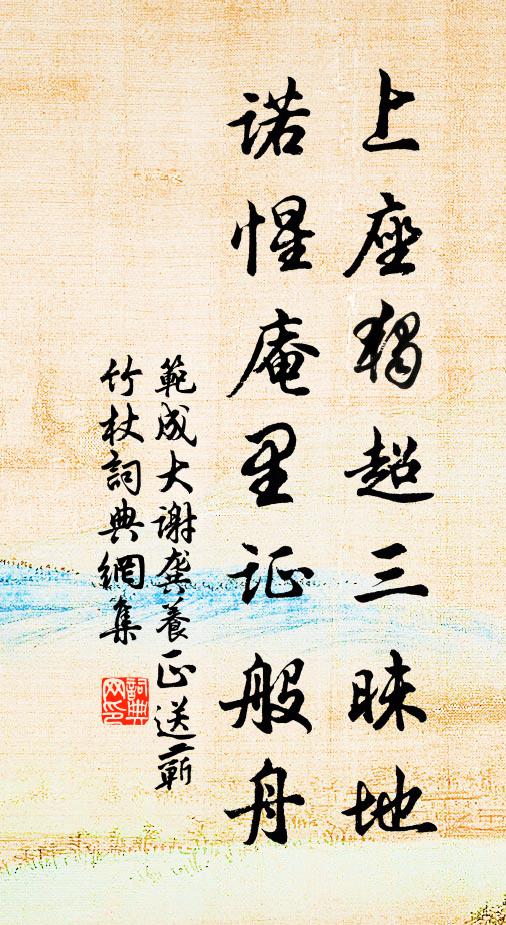 上座独超三昧地
诺惺庵里证般舟
範成大谢龚养正送蕲
竹杖詞典網集
詞典
网印